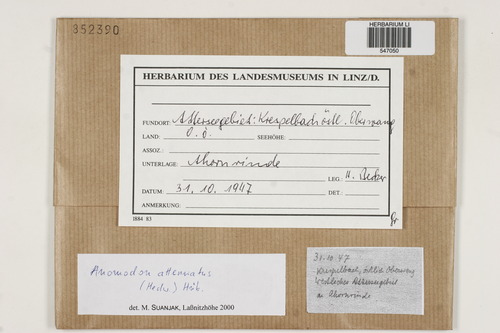 352390
HERBARIUM LI
547050
HERBARIUM DES LANDESMUSEUMS IN LINZ/D.
FUNDORT: Atterseegebiet: Krespelbach östl. Oberwang
LAND: O.Ö. SEEHÖHE:
ASSOZ.:
UNTERLAGE: Ahornrinde
LEG.: H. Becker
DATUM: 31. 10. 1947 DET.:
ANMERKUNG:
I884 83
Anomodon attenuatus
(Hedw.) Hüb.
det. M. SUANJAK, Laßnitzhöhe 2000
31.10.47
Krespelbach, östlich Oberwang
Attersegebiet
an Ahornrinde